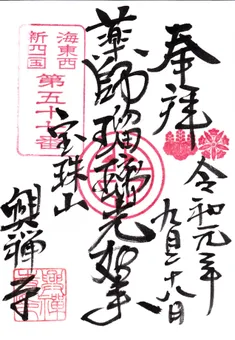 奉拝
令和元年
九月二十八日
薬師瑠璃光如来
海東西
新四国
第五十七番
宝珠山
興禅寺